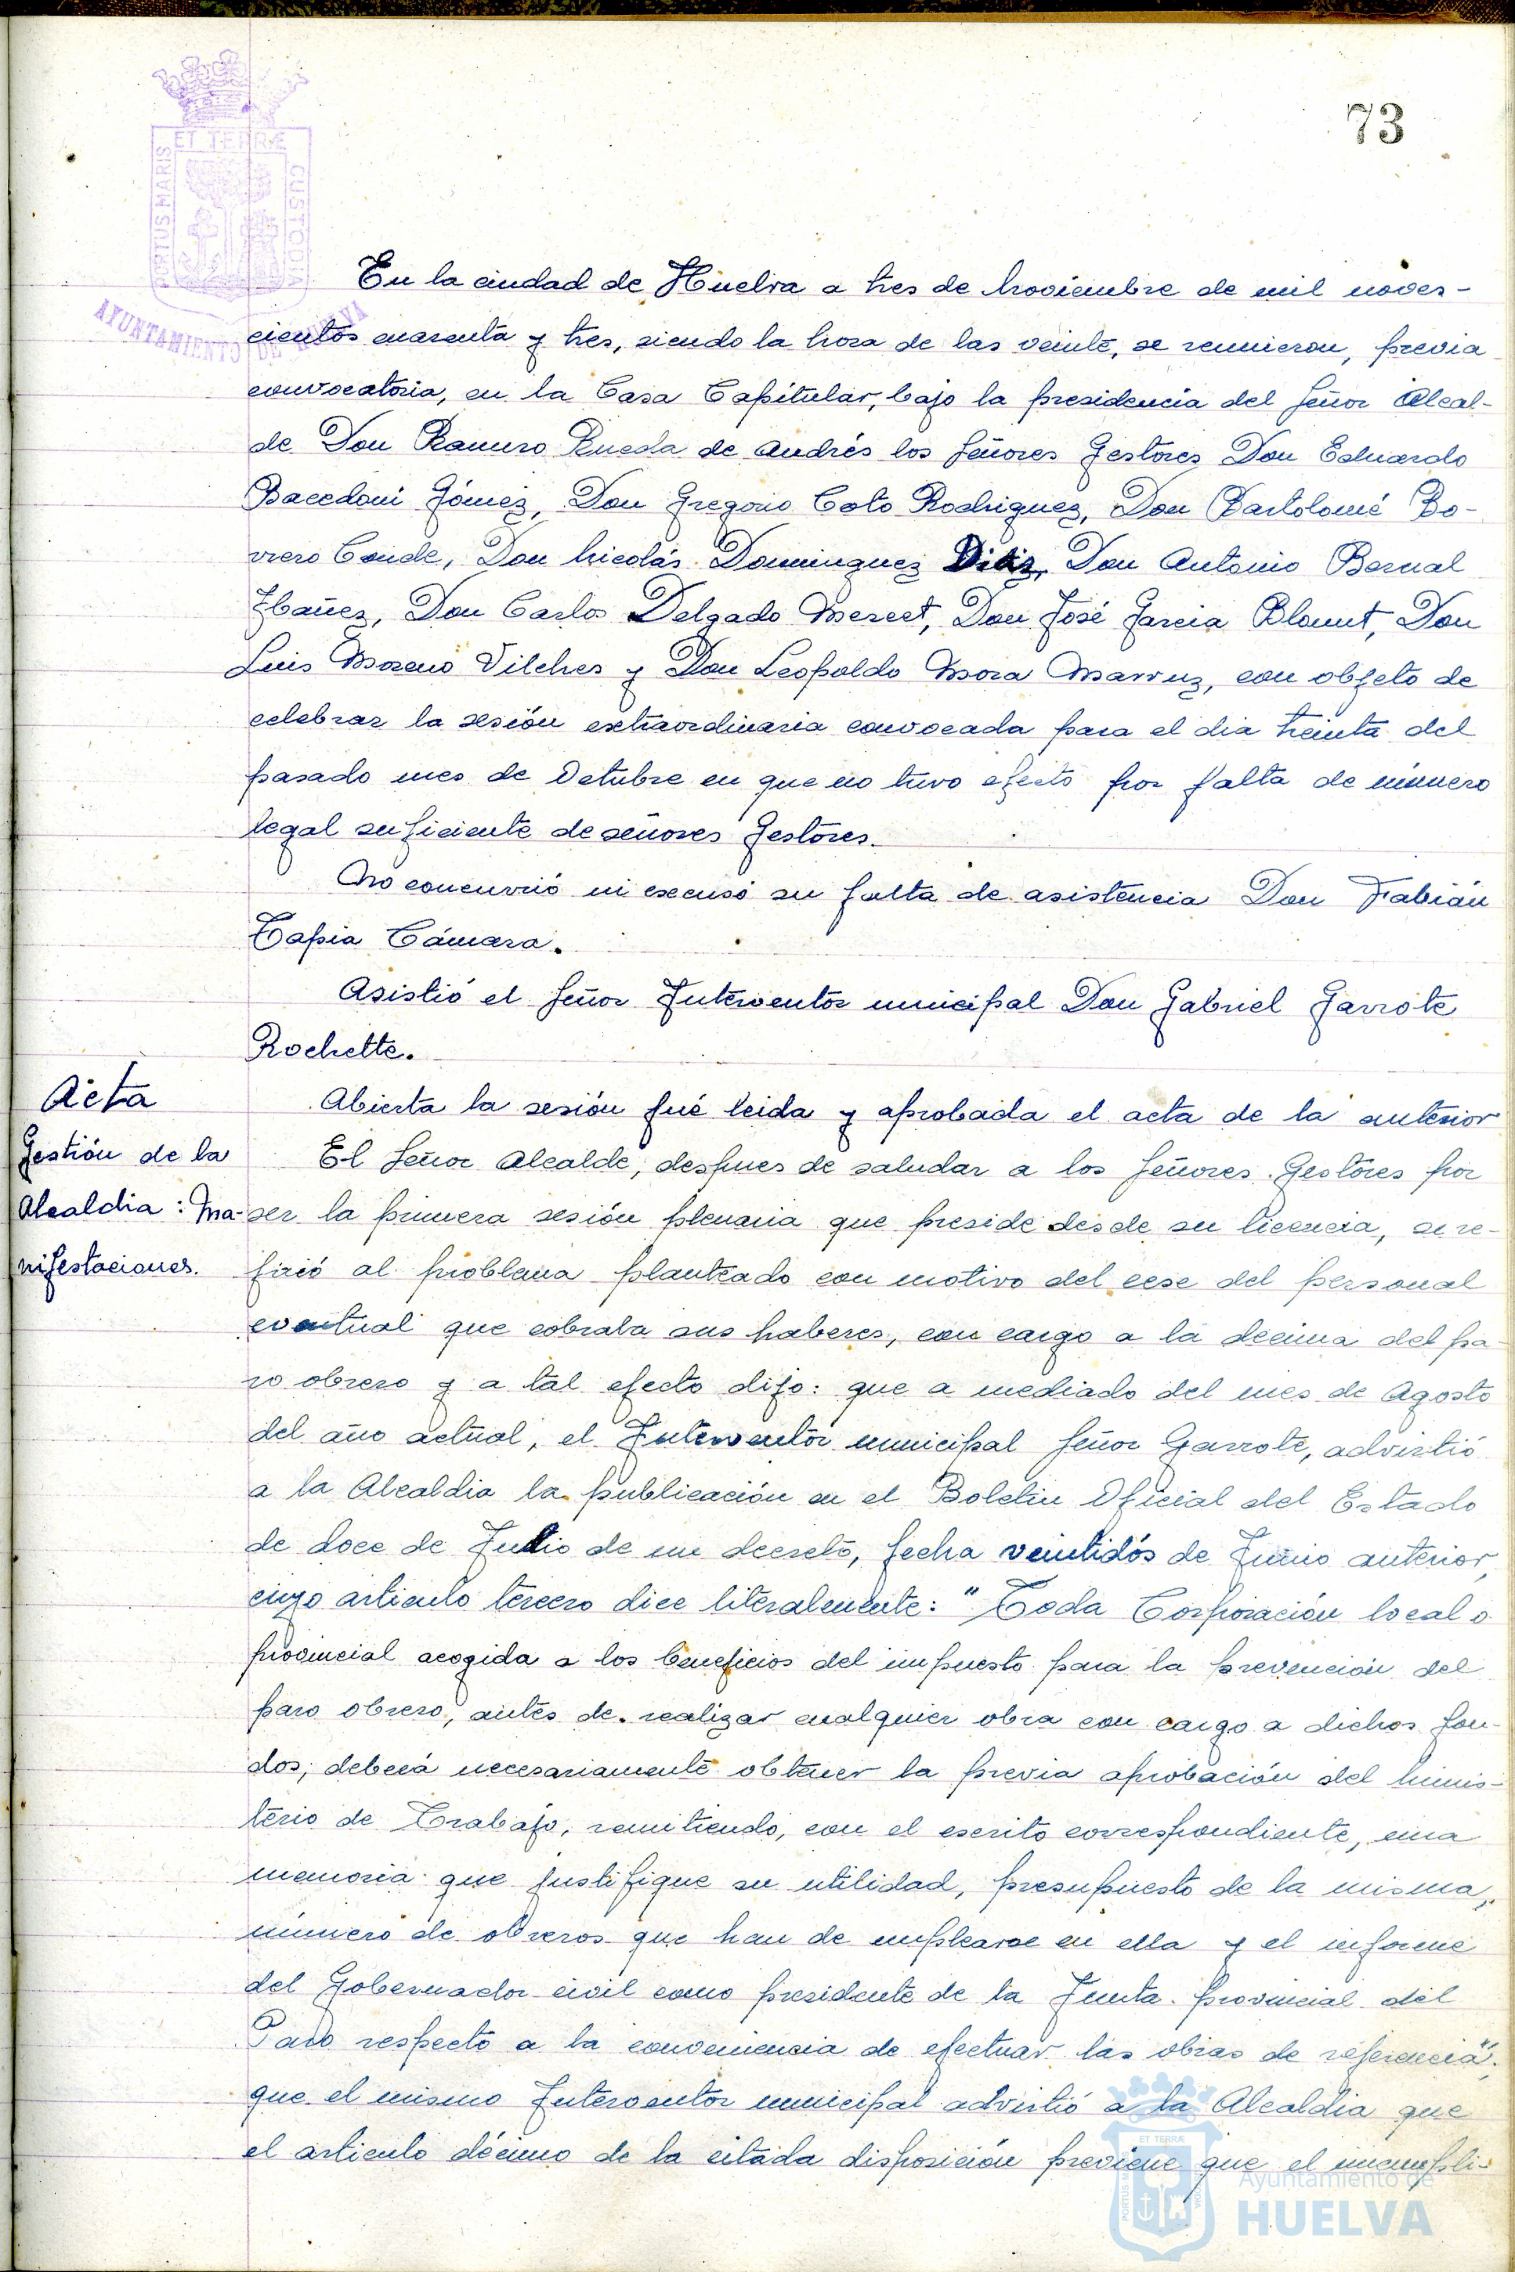 73
ET TERRÆ
PORTUS MARIS
CUSTODIA
AYUNTAMIENTO DE HUELVA
En la ciudad de Huelva a tres de Noviembre de mil noves-
cientos cuarenta y tres, siendo la hora de las veinte, se reunieron, previa
convocatoria, en la Casa Capitular, bajo la presidencia del Señor Alcal-
de Don Ramiro Rueda de Andrés los Señores Gestores Don Eduardo
Bacedoni Gómez, Don Gregorio Coto Rodriguez, Don Bartolomé Bo-
rrero Conde, Don Nicolás Dominguez Ditiz, Don Antonio Bernal
Ibañez, Don Carlos Delgado Mercet, Don José Garcia Blount, Don
Luis Moreno Vilches y Don Leopoldo Mora Marruz, con objeto de
celebrar la sesión extraordinaria convocada para el dia treinta del
pasado mes de Octubre en que no tuvo efecto por falta de número
legal suficiente de señores Gestores.
No concurrió ni excusó su falta de asistencia Don Fabián
Tapia Cámara.
Asistió el Señor Interventor municipal Don Gabriel Garrote
Rochette.
Acta
Abierta la sesión fué leida y aprobada el acta de la anterior
Gestión de la
Alcaldia: Ma-
nifestaciones.
El Señor Alcalde, despues de saludar a los Señores Gestores por
ser la primera sesión plenaria que preside desde su licencia, se re-
firió al problema planteado con motivo del cese del personal
eventual que cobraba sus haberes, con cargo a la decima del pa-
ro obrero y a tal efecto dijo: que a mediado del mes de Agosto
del año actual, el Interventor municipal Señor Garrote, advirtió
a la Alcaldia la publicación en el Boletin Oficial del Estado
de doce de Julio de un decreto, fecha veintidós de Junio anterior,
cuyo articulo tercero dice literalmente: "Toda Corporación local o
provincial acogida a los beneficios del impuesto para la prevención del
paro obrero, antes de realizar cualquier obra con cargo a dichos fon-
dos, deberá necesariamente obtener la previa aprobación del Minis-
terio de Trabajo, remitiendo, con el escrito correspondiente, una
memoria que justifique su utilidad, presupuesto de la misma,
número de obreros que han de emplearse en ella y el informe
del Gobernador civil como presidente de la Junta provincial del
Paro respecto a la conveniencia de efectuar las obras de referencia";
que el mismo Interventor municipal advirtió a la Alcaldia que
el articulo décimo de la citada disposición previene que el incumpli-
ET TERRÆ
Ayuntamiento de
HUELVA